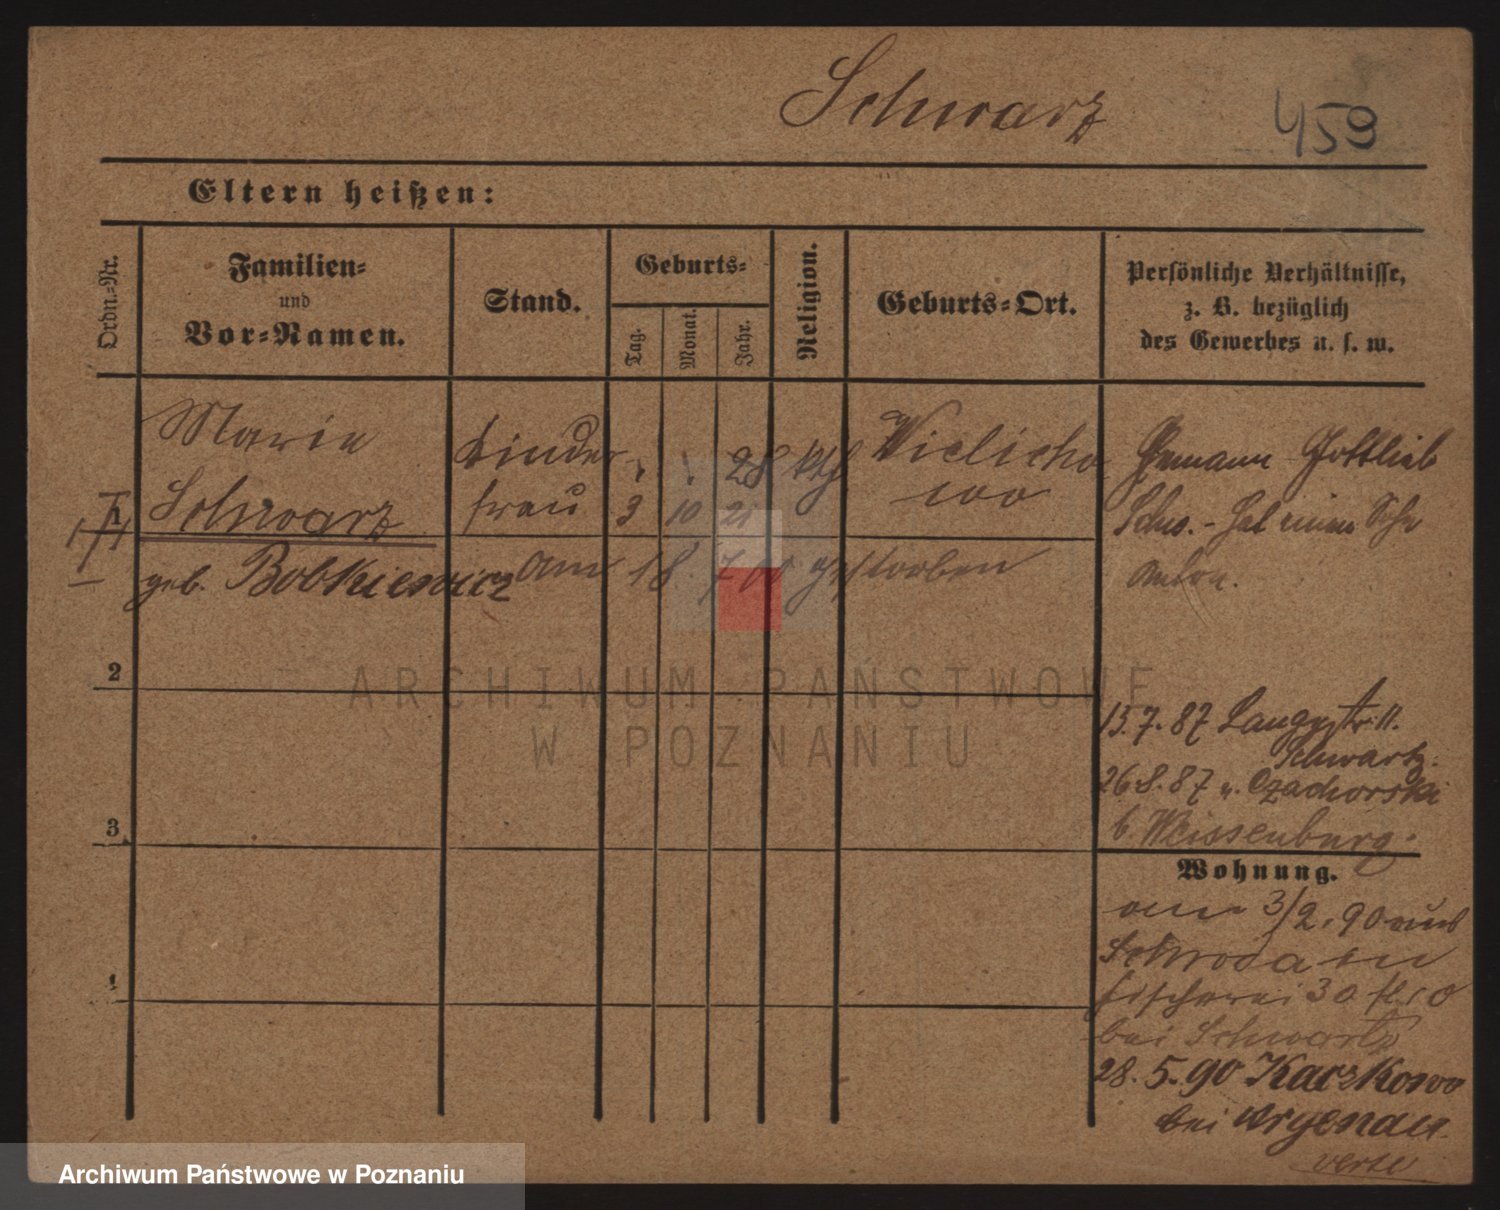 Schwarz
459
Eltern heißen:
Ordn.-Nr.
Familien-
und
Vor-Namen.
Stand.
Geburts-
Tag.
Monat.
Jahr.
Religion.
Geburts-Ort.
Persönliche Verhältnisse,
z. B. bezüglich
des Gewerbes u. s. w.
Marie
Schwarz
geb. Bobkiewicz
Kinder
frau
28
3 10 21
kth
Wielicho
wo
Ehemann Gottlieb
Schw. - hat einen Sohn
Anton.
am 18. 7 00 gestorben
1
2
3
4
15.7.87 Langestr. 11.
Schwartz.
26.8.87 v. Czachorski
b. Weissenburg.
Wohnung.
am 3/2. 90 aus
Schroda in
Fischerei 30
bei Schwartz
28. 5. 90 Kaczkowo
bei Argenau.
verte
ARCHIWUM PAŃSTWOWE
W POZNANIU
Archiwum Państwowe w Poznaniu